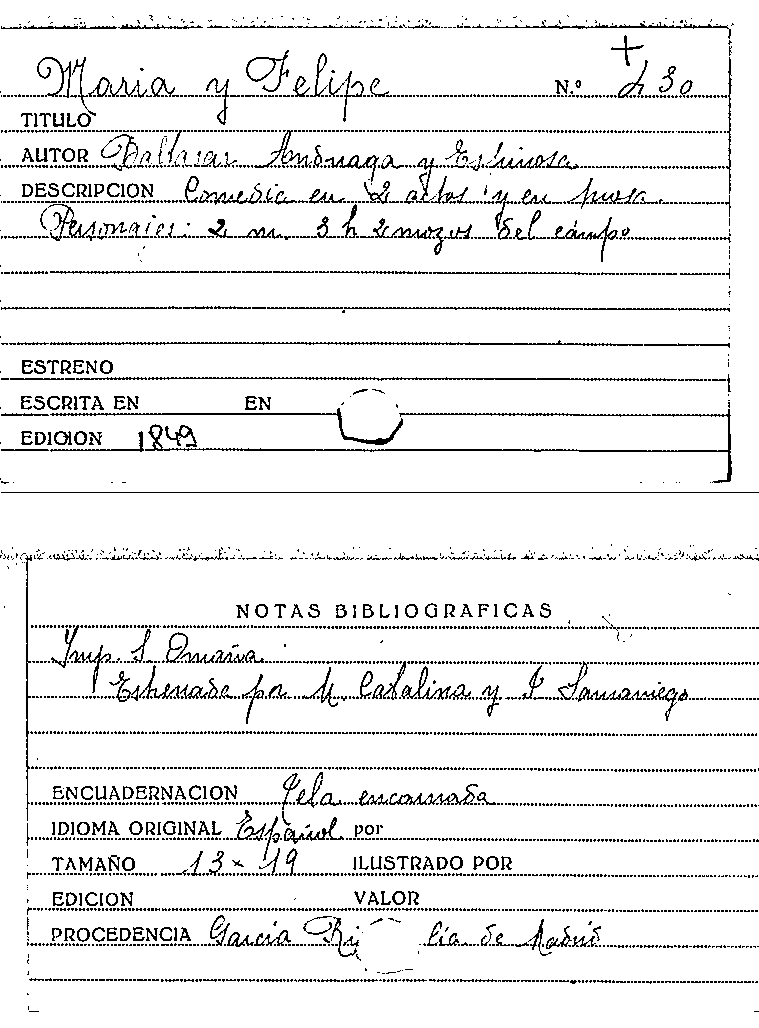 Maria y Felipe N.º 430
TITULO
AUTOR Baltasar Anduaga y Espinosa
DESCRIPCION Comedia en 2 actos y en prosa.
Personajes: 2 m. 3 h 2 mozos del campo
ESTRENO
ESCRITA EN EN
EDICION 1849
NOTAS BIBLIOGRAFICAS
Imp. S. Omaña.
Estrenada por M. Catalina y F Samaniego
ENCUADERNACION Tela encarnada
IDIOMA ORIGINAL Español por
TAMAÑO 13 x 19 ILUSTRADO POR
EDICION VALOR
PROCEDENCIA Garcia de Madrid